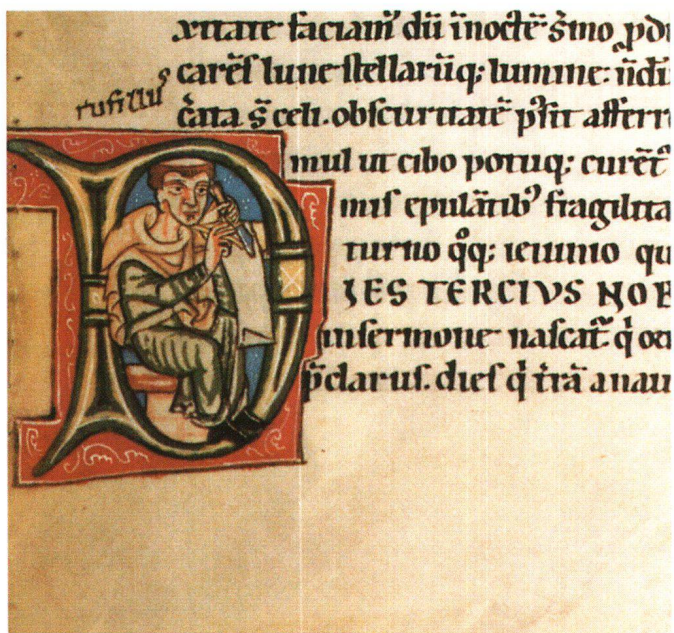 xitate faciam᾽ dū īnoctē s̄mo ꝓdu
rufillus
carēs lune stellarūq; lumine: ūdi
cata s̄ celi. obscuritatē p̄sit afferre
mul ut cibo potuq; curēt᾽
mis epulātib᾽ fragilita
turno q̊q; ieiunio qu
DIES TERCIVS NOB
insermone nascat᾽ q̇ oc
p̄clarus. dies q̇ t̄rā a nau